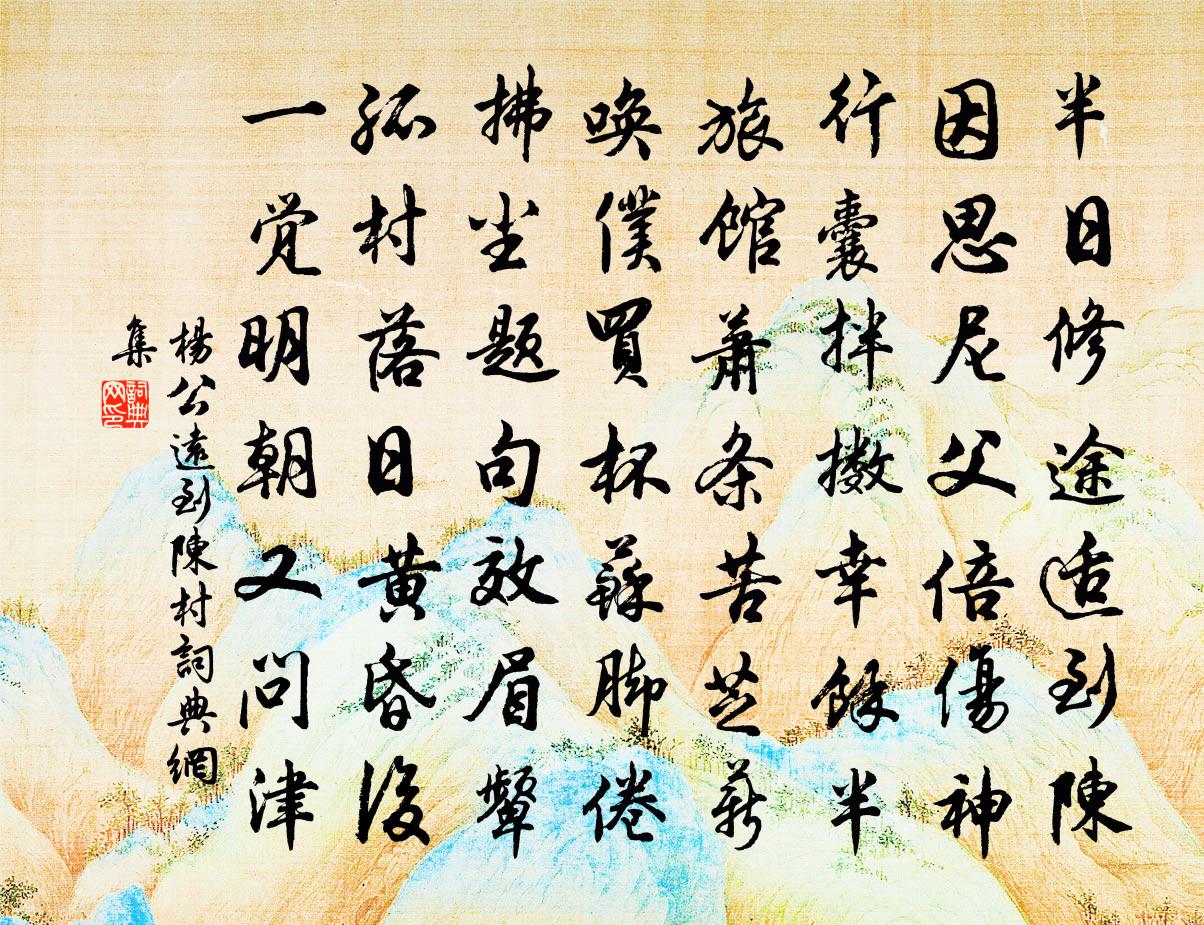 半日修途适到陳
因思尼父倍傷神
行囊拌擻幸餘半
旅館蕭条苦芝薪
唤僕買杯蘇脚倦
拂尘题句效眉顰
孤村落日黄昏後
一觉明朝又問津
楊公遠到陳村詞典網
集
詞典
网印